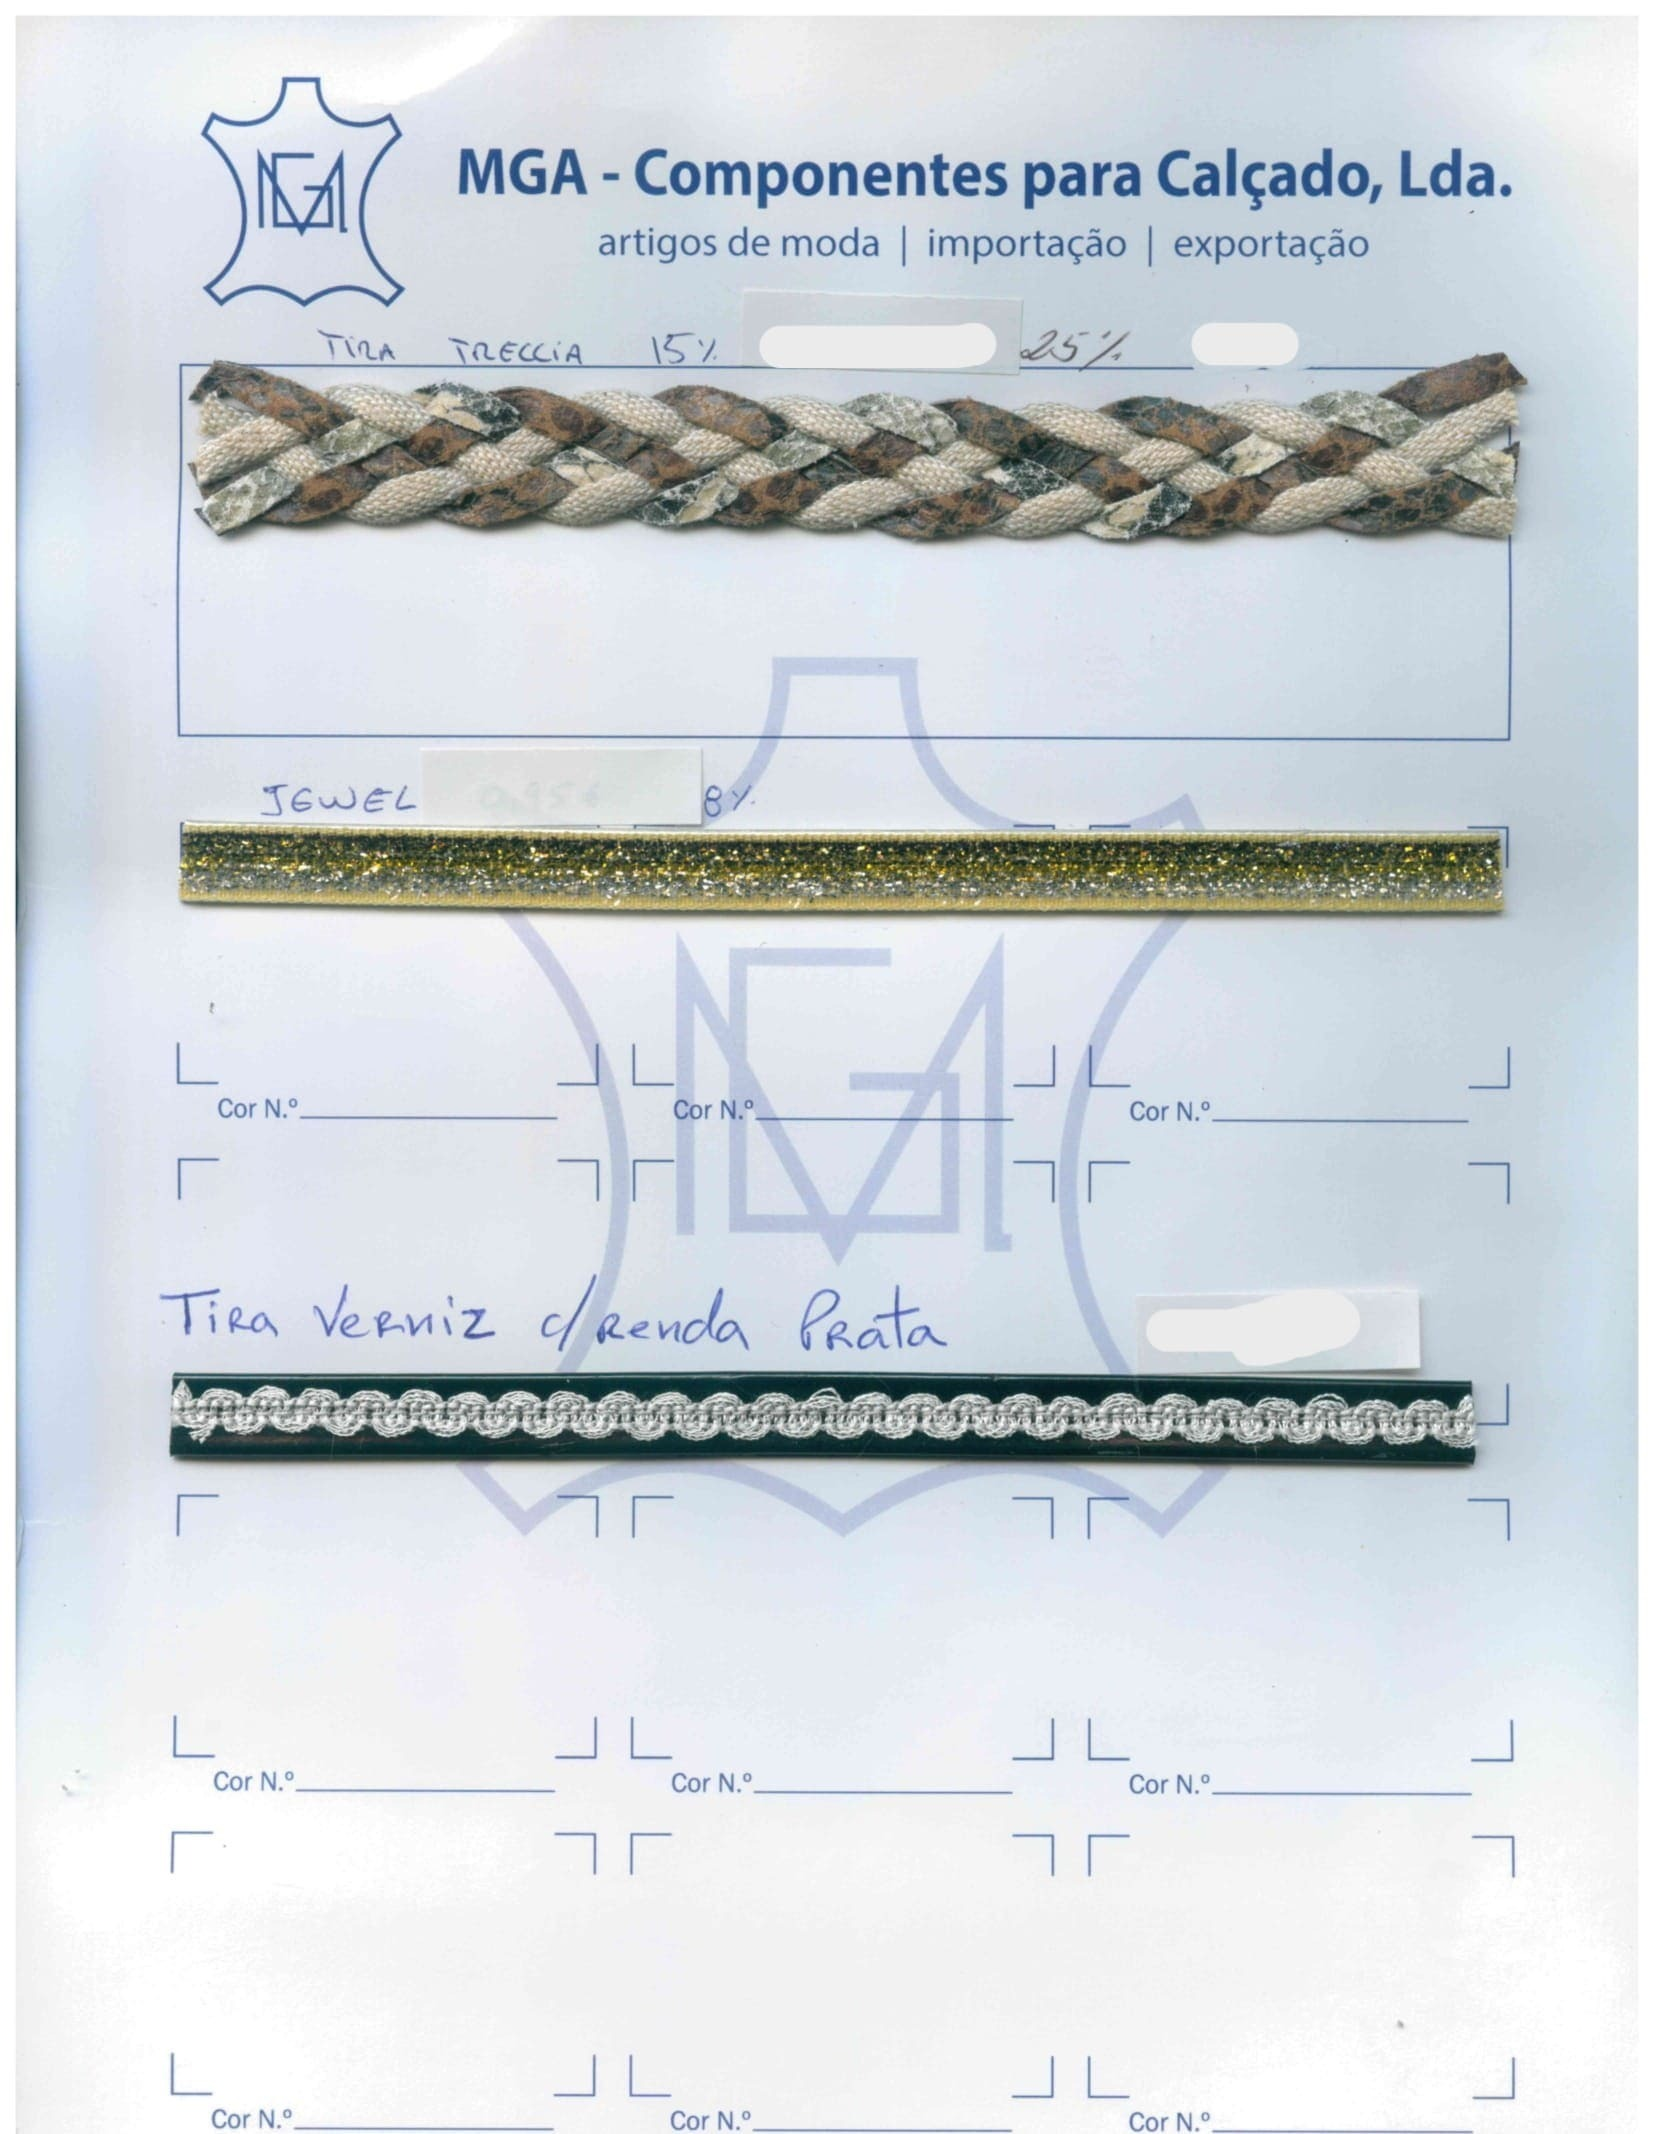 MGA
MGA - Componentes para Calçado, Lda.
artigos de moda | importação | exportação
TIRA TRECCIA 15% 25%
JEWEL 8%
MGA
Cor N.º Cor N.º Cor N.º
Tira Verniz c/ renda Prata
Cor N.º Cor N.º Cor N.º
Cor N.º Cor N.º Cor N.º